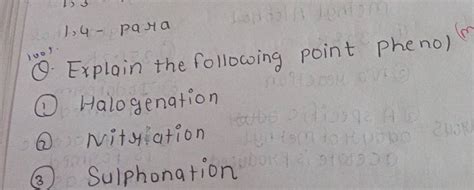 1,4 - para
100%
Q. Explain the following point phenol
① Halogenation
② Nitration
③ Sulphonation